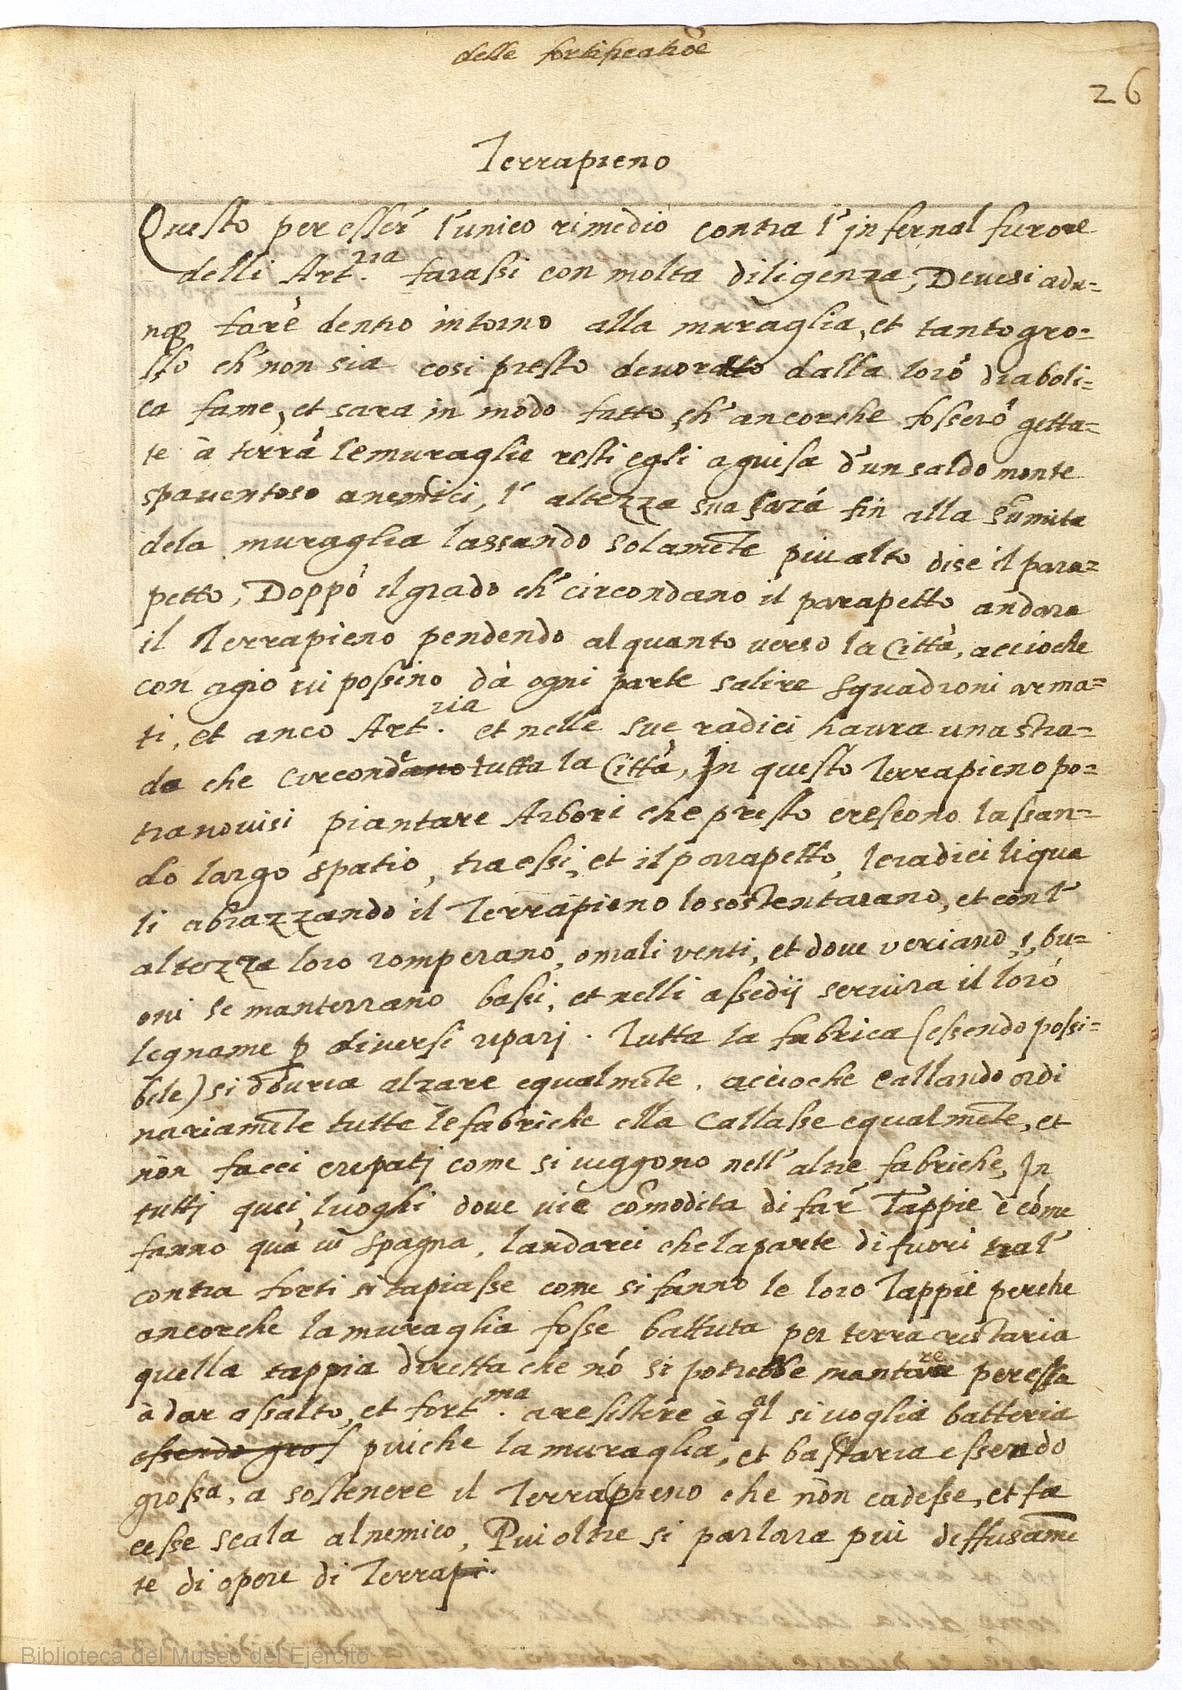 delle fortificatiōe
26
Terrapieno
Questo per esser l'unico rimedio contra l'infernal furore
delli Art.ria farassi con molta diligenza, Deuesi adu=
nq3 farè dentro intorno alla muraglia, et tanto gro=
sso ch' non sia cosi presto deuorato dalla loro diaboli=
ca fame, et sara in modo fatto, ch' ancorche fossero getta=
te à terra le muraglie resti egli a guisa d'un saldo monte
spauentoso a nemici, l' altezza sua sará fin alla sumita
dela muraglia lassando solamēte piu alto di se il para=
petto, Doppò il grado ch' circondano il parapetto andara
il Terrapieno pendendo alquanto verso la Città, accioche
con agio ui possino dà ogni parte salire squadroni arma=
ti, et anco Art.ria et nelle sue radici haura una stra=
da che circondeano tutta la Città, In questo Terrapieno po=
tranouisi piantare Arbori che presto crescono lassan=
do largo spatio, tra essi, et il parapetto, le radici li qua
li abrazzando il Terrapieno lo sostentarano, et con l'
altezza loro romperano, o mali venti, et doue veriano, i, bu=
oni se manterrano bassi, et nelli assedij seruira il loro
legname p diuersi ripari. Tutta la fabrica (essendo possi=
bile) si douria alzare equalmēte, accioche callando ordi
nariamēte tutte le fabriche ella callasse equalmēte, et
non facci crepati come si ueggono nell' altre fabriche, In
tutti quei luoghi doue uiè comodita di far' Tappie è come
fanno quà in Spagna, landarei che la parte di fuori tra l'
contra forti si tapiasse come si fanno le loro Tappie perche
ancorche la muraglia fosse battuta per terra restaria
quella tappia diretta che nō si potrebbe montare per essa
à dar assalto, et fort.ma a resistere à q̄l si uoglia batteria
essendo gros piu che la muraglia, et bastaria essendo
grossa, a sostenere il Terrapieno che non cadesse, et fa
cesse scala al nemico, Piu oltre si parlara piu diffusamē
te di opere di Terrapi.
Biblioteca del Museo del Ejército